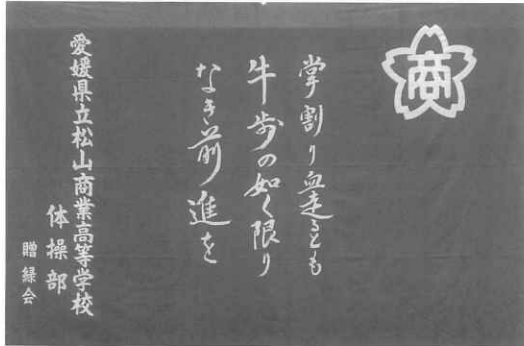 商
掌割り血走るとも
牛歩の如く限り
なき前進を
愛媛県立松山商業高等学校
体操部
贈緑会